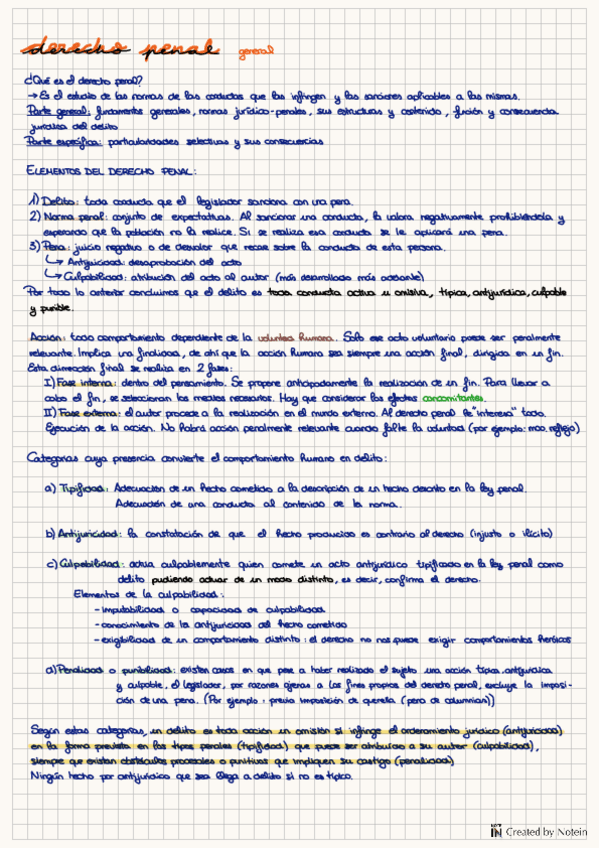 derecho penal general
¿Qué es el derecho penal?
→ Es el estudio de las normas de las conductas que las infringen y las sanciones aplicables a las mismas.
Parte general: fundamentos generales, normas jurídico-penales, sus estructuras y contenido, función y consecuencia
jurídica del delito
Parte específica: particularidades selectivas y sus consecuencias
ELEMENTOS DEL DERECHO PENAL:
1) Delito: toda conducta que el legislador sanciona con una pena.
2) Norma penal: conjunto de expectativas. Al sancionar una conducta, la valora negativamente prohibiéndola y
esperando que la población no la realice. Si se realiza esa conducta se le aplicará una pena.
3) Pena: juicio negativo o de desvalor que recae sobre la conducta de esta persona.
↳ Antijuicidad: desaprobación del acto
↳ Culpabilidad: atribución del acto al autor (más desarrollado más adelante)
Por todo lo anterior concluimos que el delito es toda conducta activa u omisiva, típica, antijurídica, culpable
y punible.
Acción: todo comportamiento dependiente de la voluntad humana. Solo ese acto voluntario puede ser penalmente
relevante. Implica una finalidad, de ahí que la acción humana sea siempre una acción final, dirigida en un fin.
Esta dirección final se realiza en 2 fases:
I) Fase interna: dentro del pensamiento. Se propone anticipadamente la realización de un fin. Para llevar a
cabo el fin, se seleccionan los medios necesarios. Hay que considerar los efectos concomitantes.
II) Fase externa: el autor procede a la realización en el mundo externo. Al derecho penal le "interesa" toda.
Ejecución de la acción. No habrá acción penalmente relevante cuando falte la voluntad (por ejemplo: mov. reflejo)
Categorías cuya presencia convierte el comportamiento humano en delito:
a) Tipicidad: Adecuación de un hecho cometido a la descripción de un hecho descrito en la ley penal.
Adecuación de una conducta al contenido de la norma.
b) Antijuricidad: la constatación de que el hecho producido es contrario al derecho (injusto o ilícito)
c) Culpabilidad: actúa culpablemente quien comete un acto antijurídico tipificado en la ley penal como
delito pudiendo actuar de un modo distinto, es decir, confirma el derecho.
Elementos de la culpabilidad:
- imputabilidad o capacidad de culpabilidad
- conocimiento de la antijuricidad del hecho cometido
- exigibilidad de un comportamiento distinto: el derecho no nos puede exigir comportamientos heróicos
d) Penalidad o punibilidad: existen casos en que pese a haber realizado el sujeto una acción típica, antijurídica
y culpable, el legislador, por razones ajenas a los fines propios del derecho penal, excluye la imposi-
ción de una pena. (Por ejemplo: previa imposición de querella (pena de calumnias))
Según estas categorías, un delito es toda acción un omisión si infringe el ordenamiento jurídico (antijuricidad)
en la forma prevista en los tipos penales (tipicidad) que puede ser atribuido a su autor (culpabilidad),
siempre que existan obstáculos procesales o punitivos que impliquen su castigo (penalidad)
Ningún hecho por antijurídico que sea llega a delito si no es típico.
NOTE IN Created by Notein